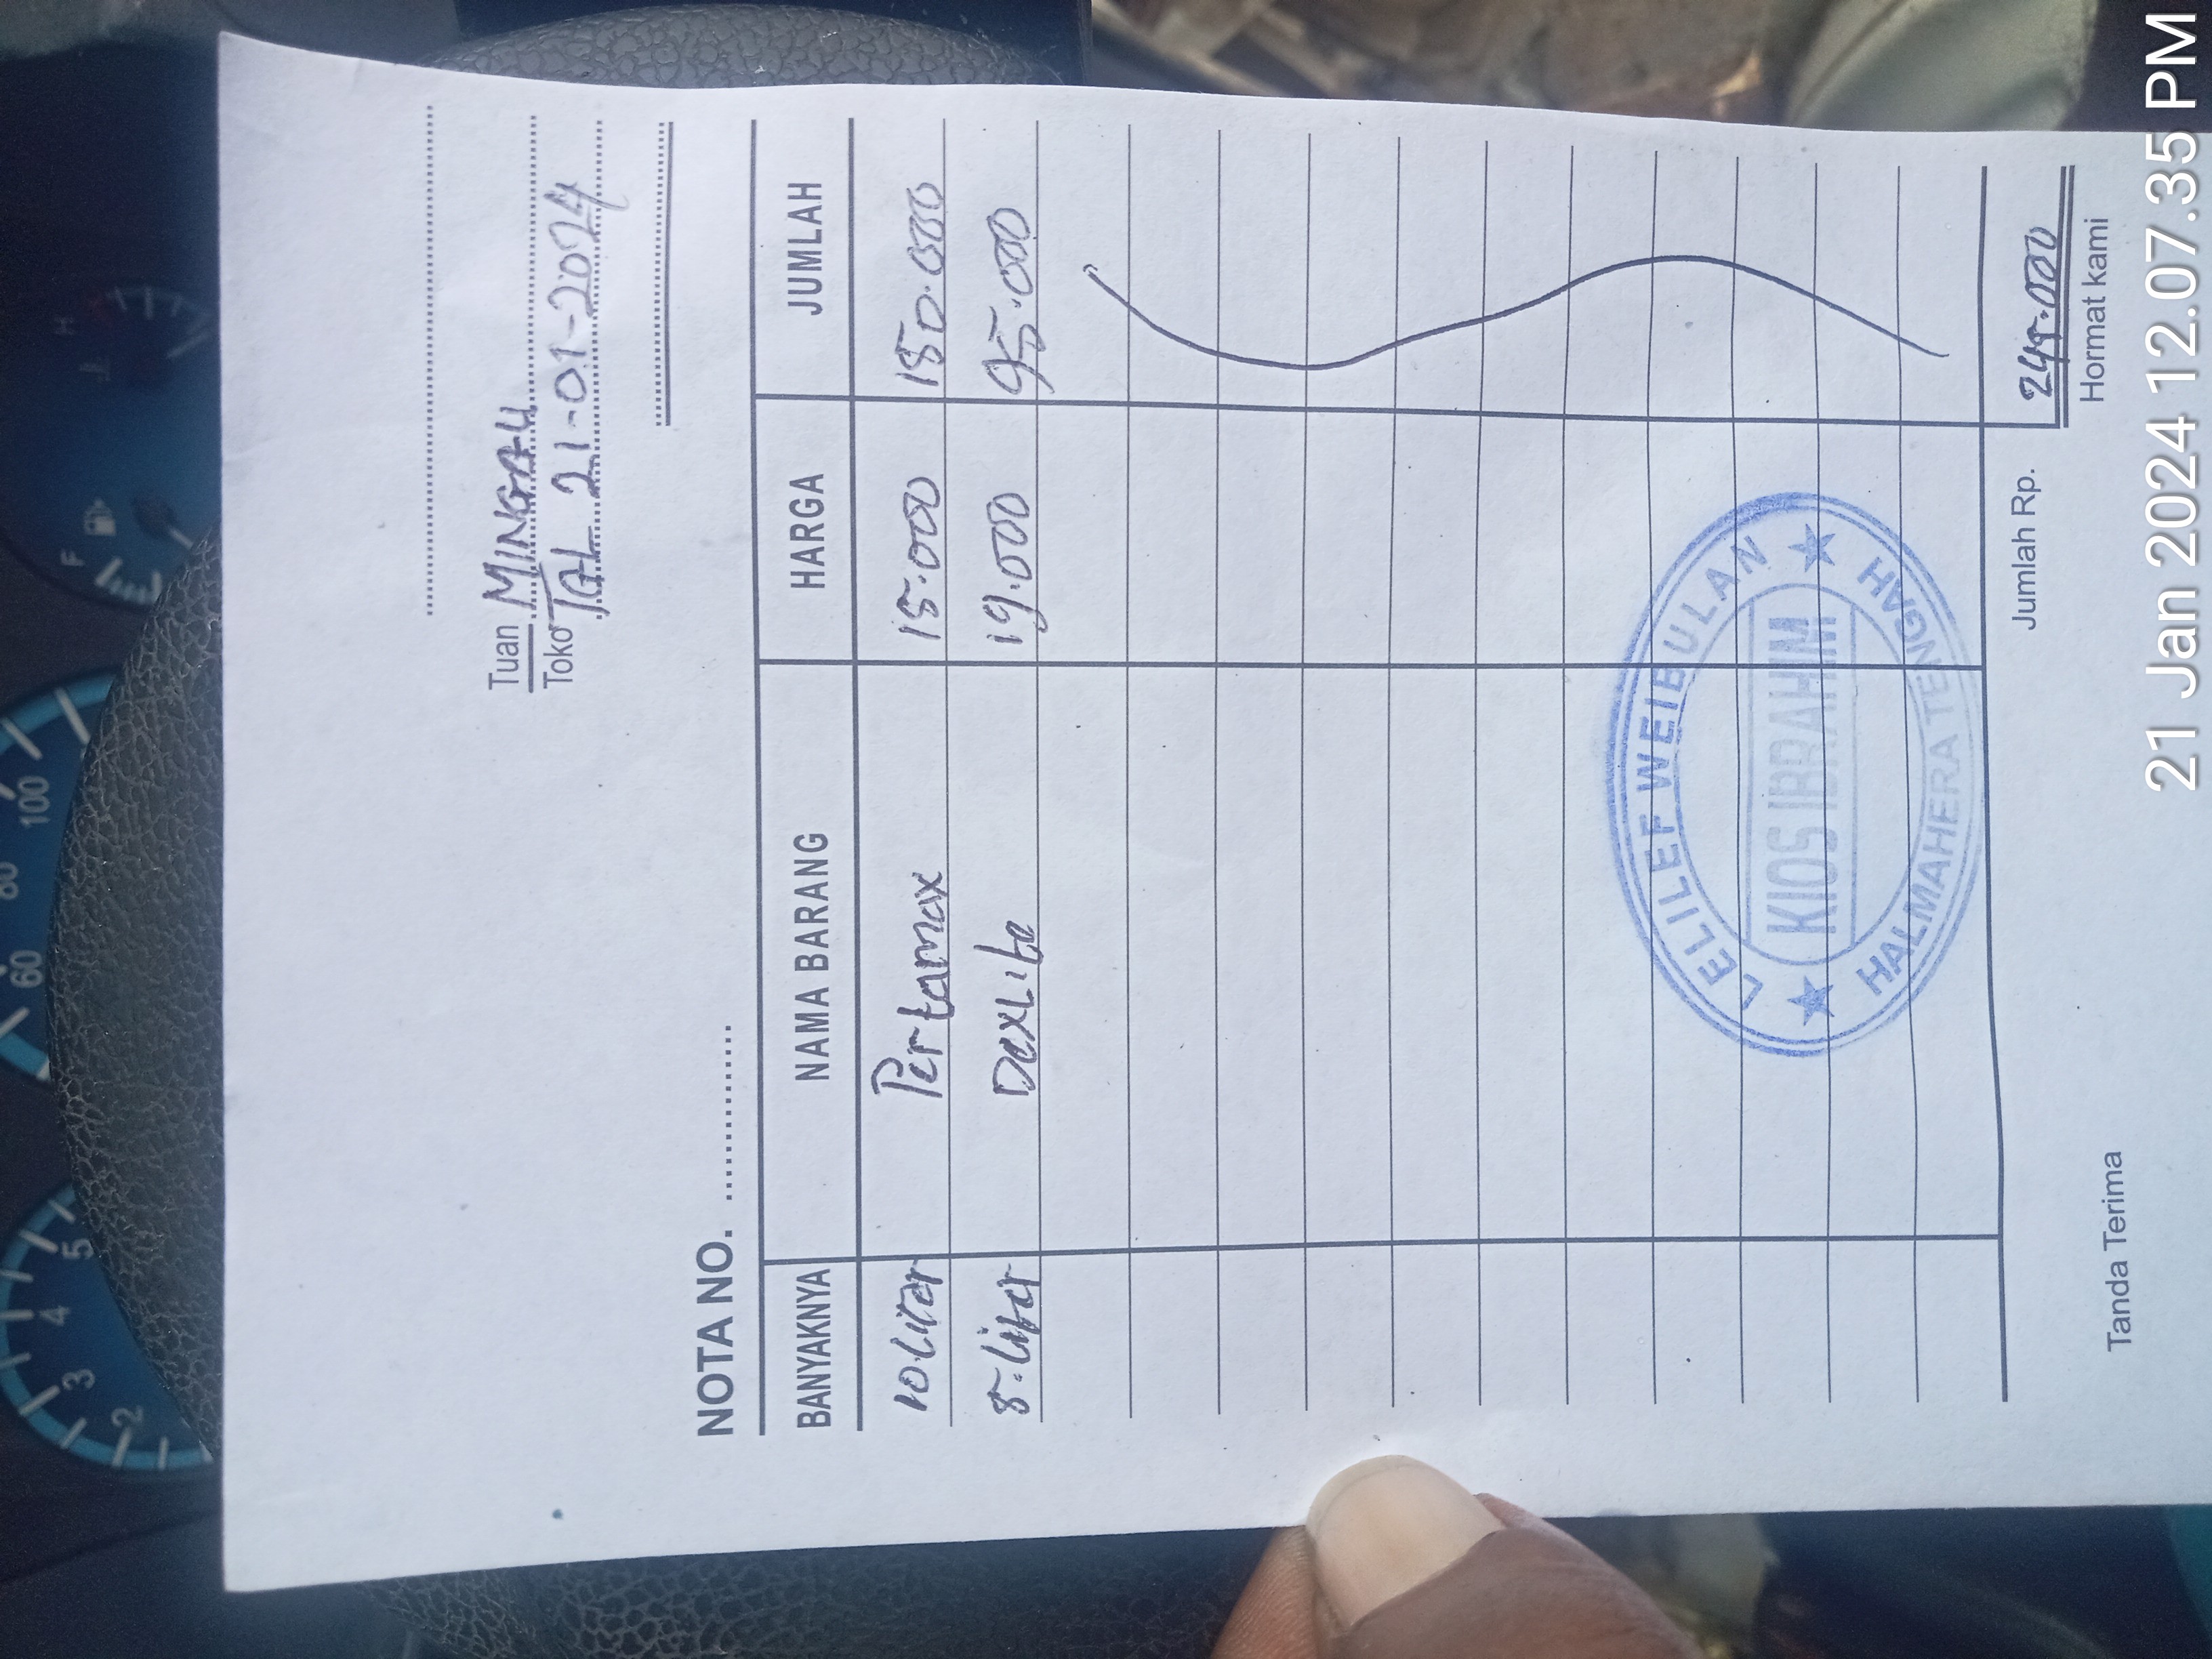 Tuan MINGGU
Toko TGL 21-01-2024
NOTA NO. ...............
BANYAKNYA NAMA BARANG HARGA JUMLAH
10.Liter Pertamax 15.000 150.000
5.Liter DexLite 19.000 95.000
LELILEF WEIBULAN
KIOS IBRAHIM
HALMAHERA TENGAH
Jumlah Rp. 245.000
Tanda Terima Hormat kami
21 Jan 2024 12.07.35 PM
F
H
60
80
100
2
3
4
5